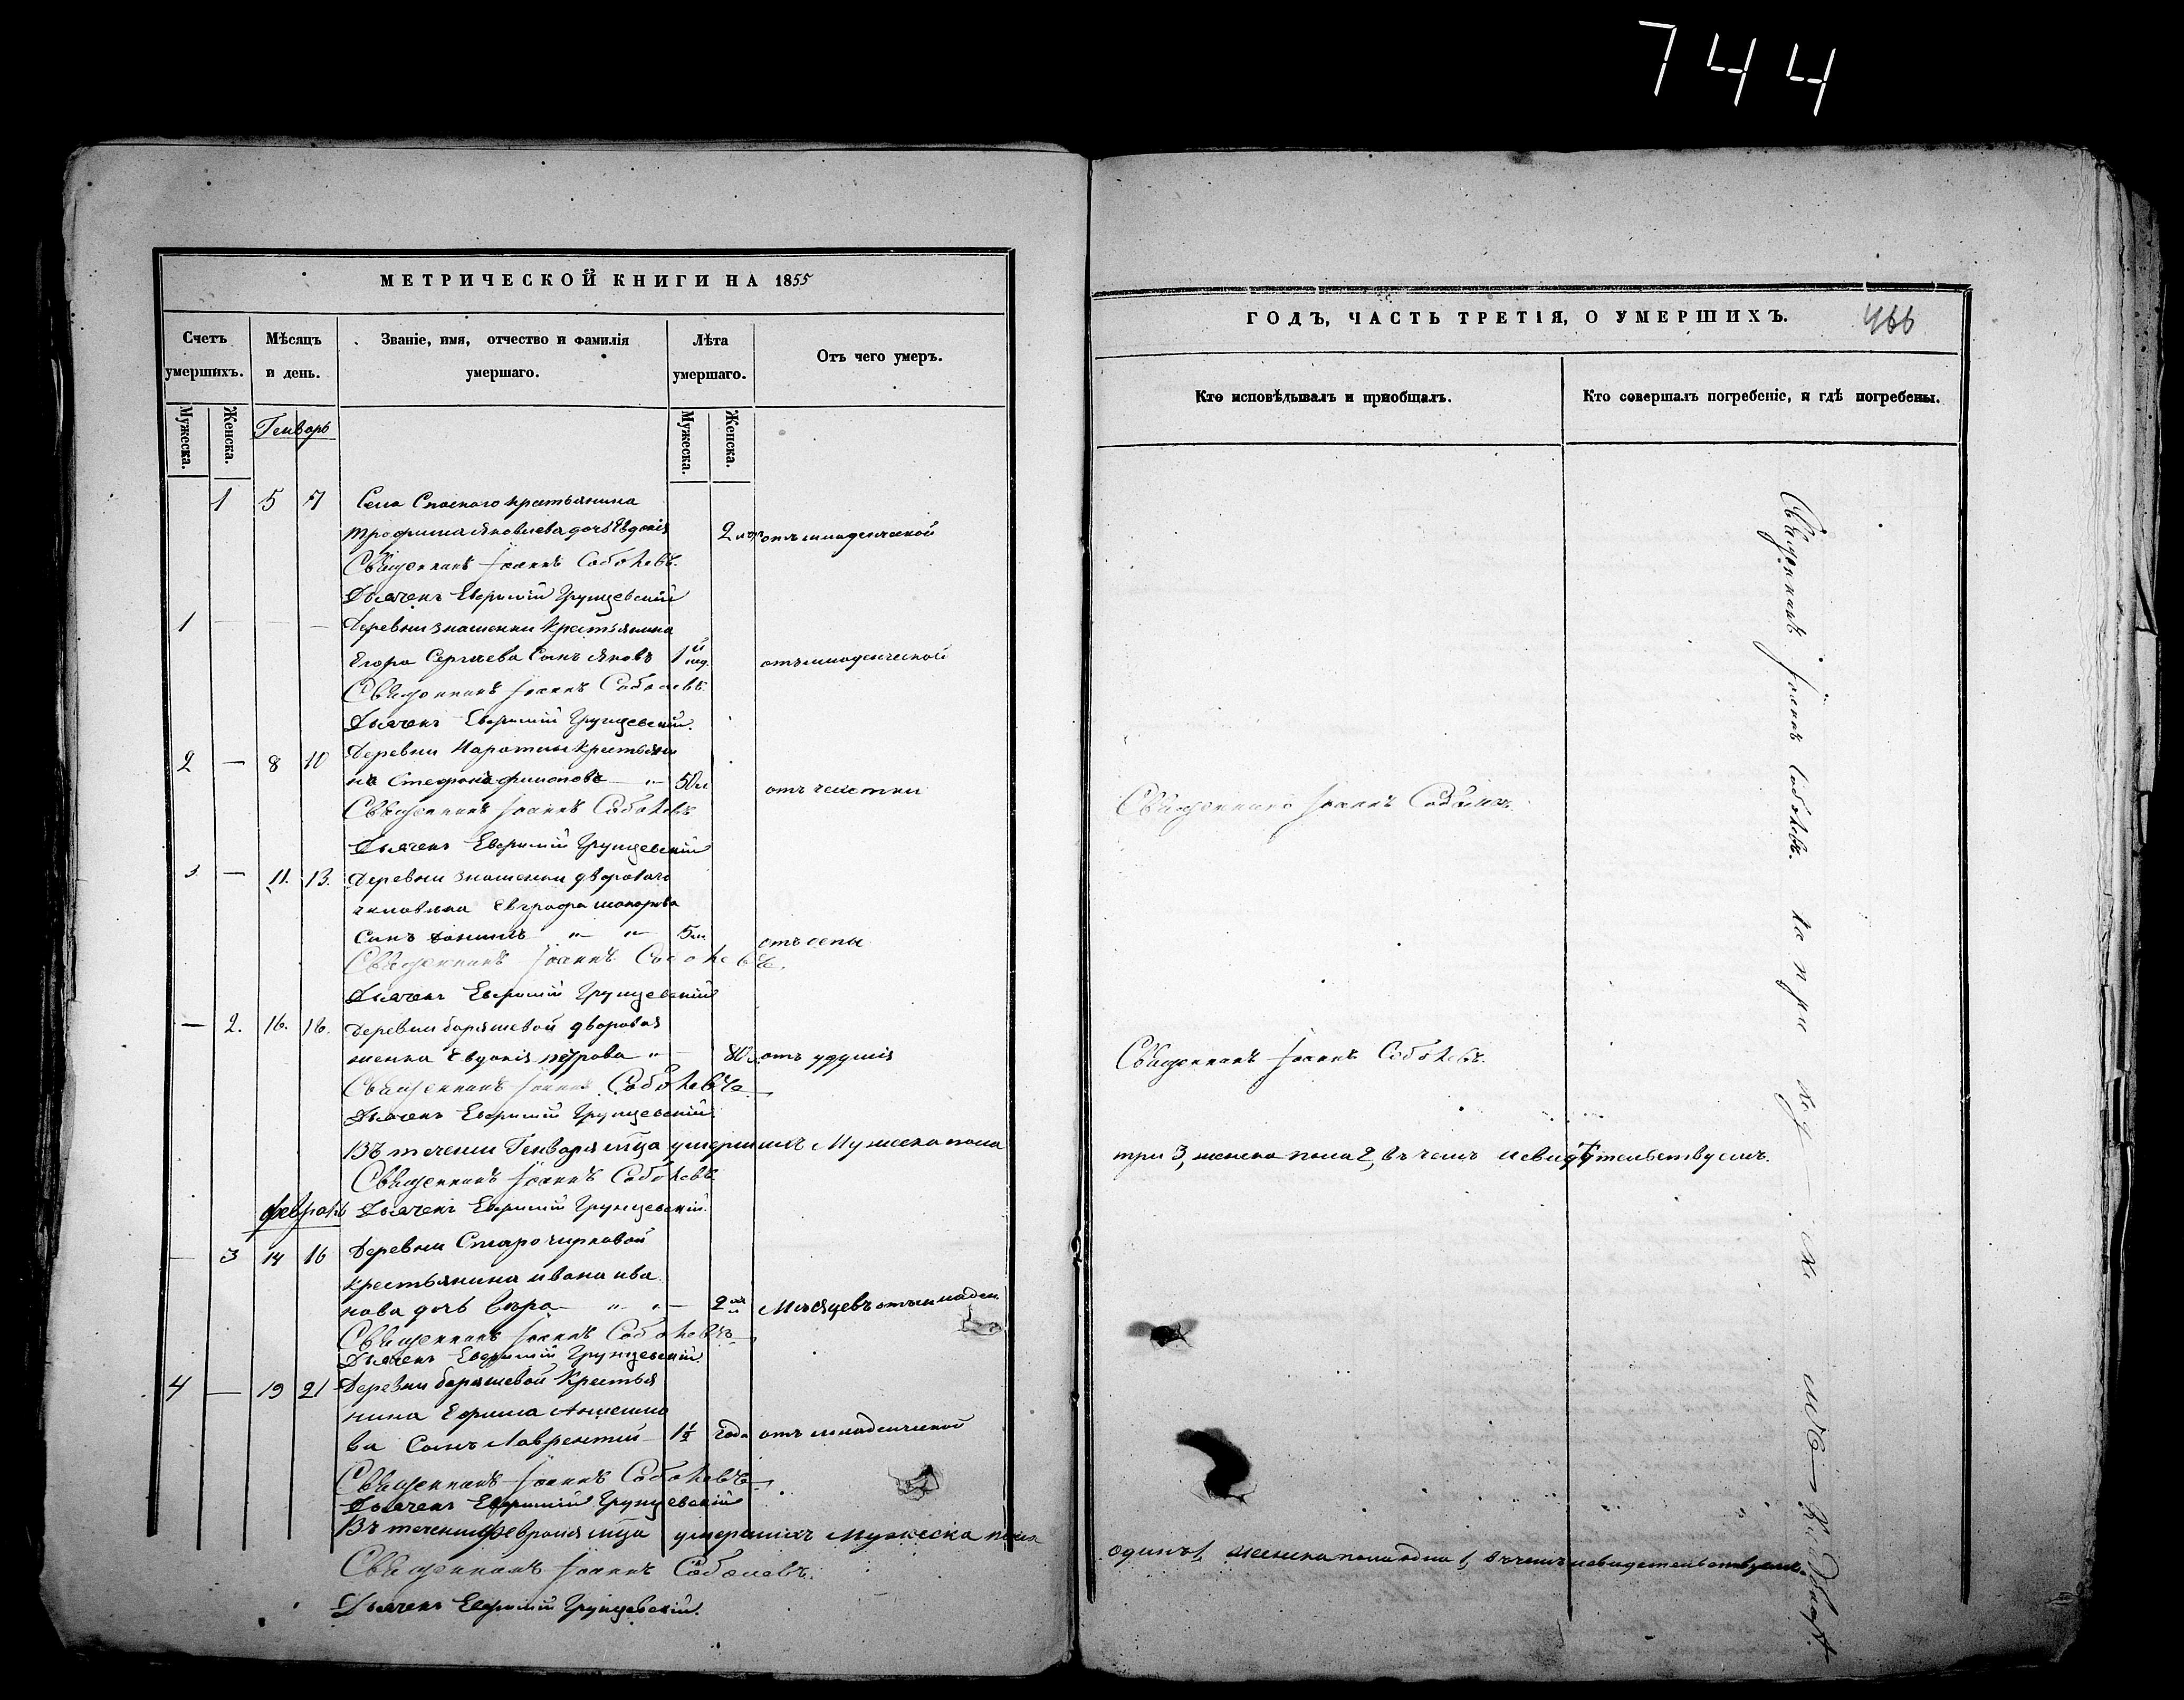 744
МЕТРИЧЕСКОЙ КНИГИ НА 1855
Счетъ умершихъ.
Мѣсяцъ и день.
Званіе, имя, отчество и фамилія умершаго.
Лѣта умершаго.
Отъ чего умеръ.
Мужеска.
Женска.
Генварь
Мужеска.
Женска.
1 5 7 Села Спаскаго крестьянина
Трофима Яковлева дочь Евдокія 2 отъ младенческой
Священникъ Іоаннъ Соболевъ.
Дьячекъ Евфимій Грунцевскій
1 Деревни Знаменки крестьянина
Егора Сергѣева сынъ Яковъ 1 нед. отъ младенческой
Священникъ Іоаннъ Соболевъ.
Дьячекъ Евфимій Грунцевскій.
2 — 8 10 Деревни крестьяни
нъ Стефанъ Филиповъ 50 л. отъ чахотки
Священникъ Іоаннъ Соболевъ
Дьячекъ Евфимій Грунцевскій
3 — 11. 13. Деревни Знаменки двороваго
человека Евграфа
сынъ 5 л. отъ оспы
Священникъ Іоаннъ Соболевъ.
Дьячекъ Евфимій Грунцевскій
— 2. 16. 18. Деревни Барашевой дворовая
женка Евдокія Петрова 80 отъ удушія
Священникъ Іоаннъ Соболевъ
Дьячекъ Евфимій Грунцевскій
Въ теченіи Генваря мца умершихъ Мужеска пола
Священникъ Іоаннъ Соболевъ
Февраль Дьячекъ Евфимій Грунцевскій.
— 3 14 16 Деревни Старочирковой
крестьянина Ивана Ива
нова дочь Вѣра — 2 Мѣсяцевъ отъ младен
Священникъ Іоаннъ Соболевъ
Дьячекъ Евфимій Грунцевскій.
4 — 19 21 Деревни Барашевой Крестья
нина Ефима
ва сынъ Лаврентій 1½ года отъ младенческой
Священникъ Іоаннъ Соболевъ
Дьячекъ Евфимій Грунцевскій
Въ теченіи Февраля мца умершихъ Мужеска пола
Священникъ Іоаннъ Соболевъ.
Дьячекъ Евфимій Грунцевскій.
ГОДЪ, ЧАСТЬ ТРЕТІЯ, О УМЕРШИХЪ. 466
Кто исповѣдывалъ и приобщалъ.
Кто совершалъ погребеніе, и гдѣ погребены.
Священникъ Іоаннъ Соболевъ.
Священникъ Іоаннъ Соболевъ.
три 3, женска пола 2, въ чемъ и свидѣтельствуемъ.
одинъ 1, женска пола одна 1, въ чемъ и свидетельствуемъ.
Священникъ Іоаннъ Соболевъ. на при хо